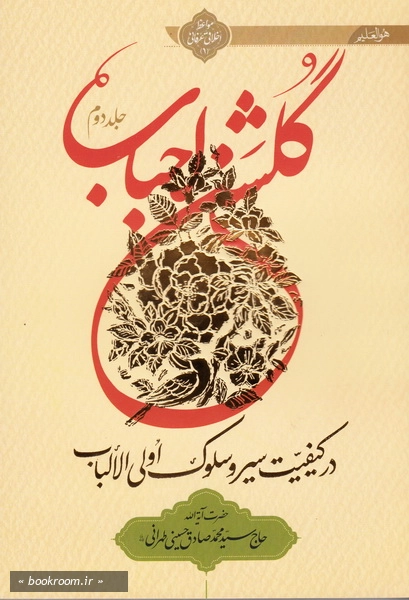 هوالعلیم
مواعظ
اخلاقی عرفانی
گلشن احباب
جلد دوم
در کیفیّت سیر و سلوک اولی الألباب
حضرت آیة الله
حاج سیّد محمّد صادق حسینی طهرانی
« bookroom.ir »